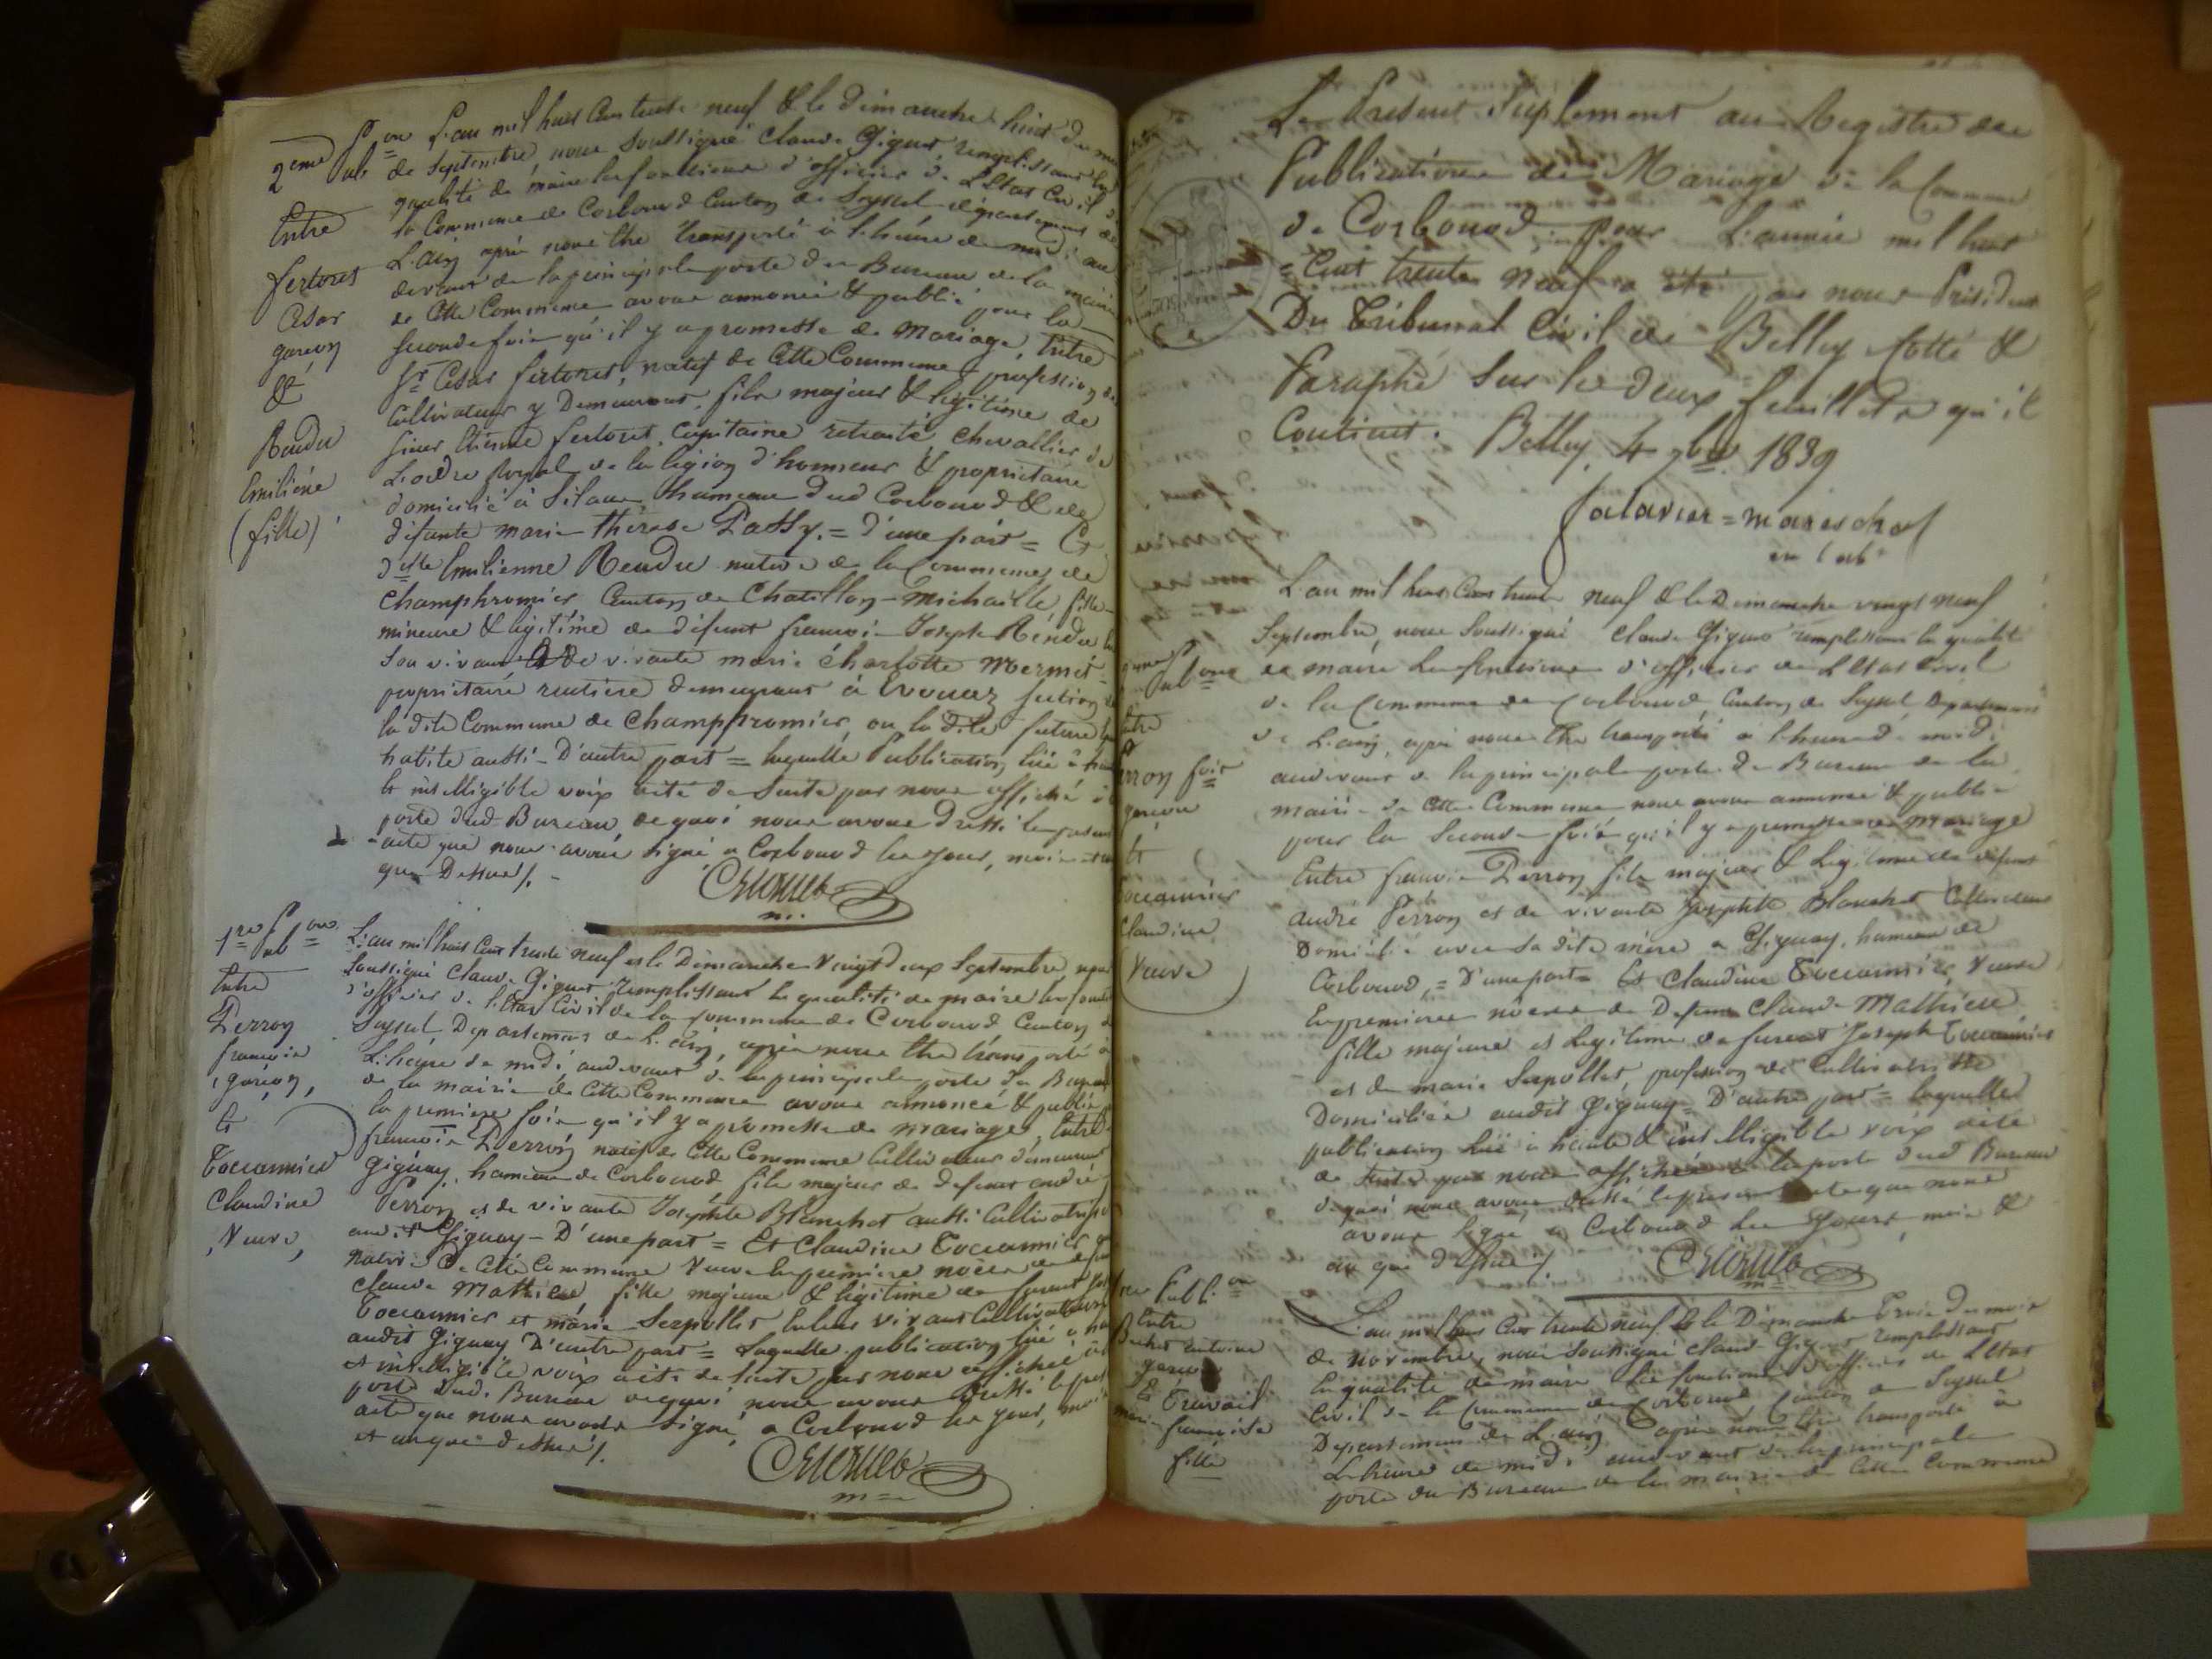 2eme Pub.on
Entre
fertoret
César
garçon
&
Rendu
Emiliène
(fille)
L'an mil huit cent trente neuf & le dimanche huit du
de Septembre, nous Soussigné Claude Giguet, remplissant la
qualité de maire les fonctions d'officier de L'Etat Civil
la Commune de Corbonod Canton de Seyssel département de
L'ain après nous être transporté à l'heure de midi au
devant de la principale porte du Bureau de la mairie
de cette Commune avons annoncé & publié pour la
Seconde fois qu'il y a promesse de Mariage, Entre
Sr César fertoret, natif de cette Commune profession de
Cultivateur y Demeurant, fils majeur & légitime de
Sieur Etienne fertoret, Capitaine retraité Chevallier de
L'ordre Royal de la légion d'honneur & propriétaire
domicilié à Silans hameau dud Corbonod & de
défunte marie thérèse Passy. = d'une part = Et
dlle Emilienne Rendu native de la Commune de
Champfromier Canton de Chatillon-Michaille, fille
mineure & légitime de défunt françois Joseph Réndu
Son vivant de vivante marie Charlotte Mermet
propriétaire rentière demeurant à Evouaz section
la dite Commune de Champfromier, ou la dite future
habite aussi - D'autre part = laquelle Publication lüe à
& intelligible voix a été de Suite par nous affiché
porte dud Bureau, de quoi nous avons Dressé le
acte que nous avons Signé a Corbonod les jour, mois
que Dessus /. -
1re Pub.on
Entre
Perron
françois
, garçon,
&
Toccannier
Claudine
, Veuve,
L'an mil huit Cent trente neuf et le Dimanche Vingt deux Septembre, nous
Soussigné Claude Giguet remplissant la qualité de maire les
d'officier de l'Etat Civil de la Commune de Corbonod Canton
Seyssel, Département de L'ain, après nous être transporté à
L'heure de midi, audevant de la principale porte du Bureau
de la mairie de cette Commune avons annoncé & publié
la première fois qu'il y a promesse de mariage, Entre
françois Perron natif de cette Commune Cultivateur demeurant
Gignay, hameau de Corbonod fils majeur de défunt andré
Perron et de vivante Josephte Blanchet aussi Cultivatrice
audit Gignay - D'une part = Et Claudine Toccannier
native de cette Commune Veuve En première noces de
Claude Mathieu fille majeure & légitime de furent
Toccannier et marie Serpollet Cultivateurs
audit Gignay D'autre part = Laquelle publication lüe à
et intelligible voix a été de Suite par nous affichée à
porte Dud. Bureau de quoi nous avons Dressé le
acte que nous avons Signé, a Corbonod les jour, mois
et an que dessus /.
Le Présent Suplement au Registre des
Publications de Mariage de la Commune
de Corbonod pour L'année mil huit
Cent trente neuf a été par nous Président
Du Tribunal Civil de Belley Cotté &
Paraphé Sur les deux feuillets qu'il
Contient. Belley, 4 9bre 1839
Pub.on
Entre
Perron
garçon
&
Toccannier
Claudine
Veuve
L'an mil huit Cent trente neuf & le Dimanche vingt neuf
Septembre, nous Soussigné Claude Giguet remplissant la qualité
de maire les fonctions d'officier de L'Etat Civil
de la Commune de Corbonod, Canton de Seyssel, Département
de L'ain, après nous être transporté à l'heure de midi
audevant de la principale porte du Bureau de la
mairie de cette Commune nous avons annoncé & publié
pour la Seconde fois qu'il y a promesse de Mariage
Entre françois Perron fils majeur & Légitime de défunt
andré Perron et de vivante Josephte Blanchet Cultivateur
Domicilié avec sa dite mère a Gignay, hameau de
Corbonod, = D'une part = Et Claudine Toccannier, Veuve
En première noces de Defunt Claude Mathieu
fille majeure et Légitime de furent Joseph Toccannier
et de marie Serpollet, profession de Cultivatrice
Domiciliée audit Gignay = D'autre part = laquelle
publication lüe à haute & intelligible voix a été
de Suite par nous affichée à la porte dud Bureau
de quoi nous avons dressé le présent acte que nous
avons Signé a Corbonod les Jour, mois &
an que dessus /.
Publi.on
Entre
antoine
garçon
&
Travail
marie
françoise
fille
L'an mil huit Cent trente neuf & le Dimanche Trois du mois
de Novembre, nous Soussigné Claude Giguet remplissant
la qualité de maire les fonctions d'officier de L'Etat
Civil de la Commune de Corbonod, Canton de Seyssel
Département de L'ain, après nous être transporté à
L'heure de midi audevant de la principale
porte du Bureau de la mairie de cette Commune